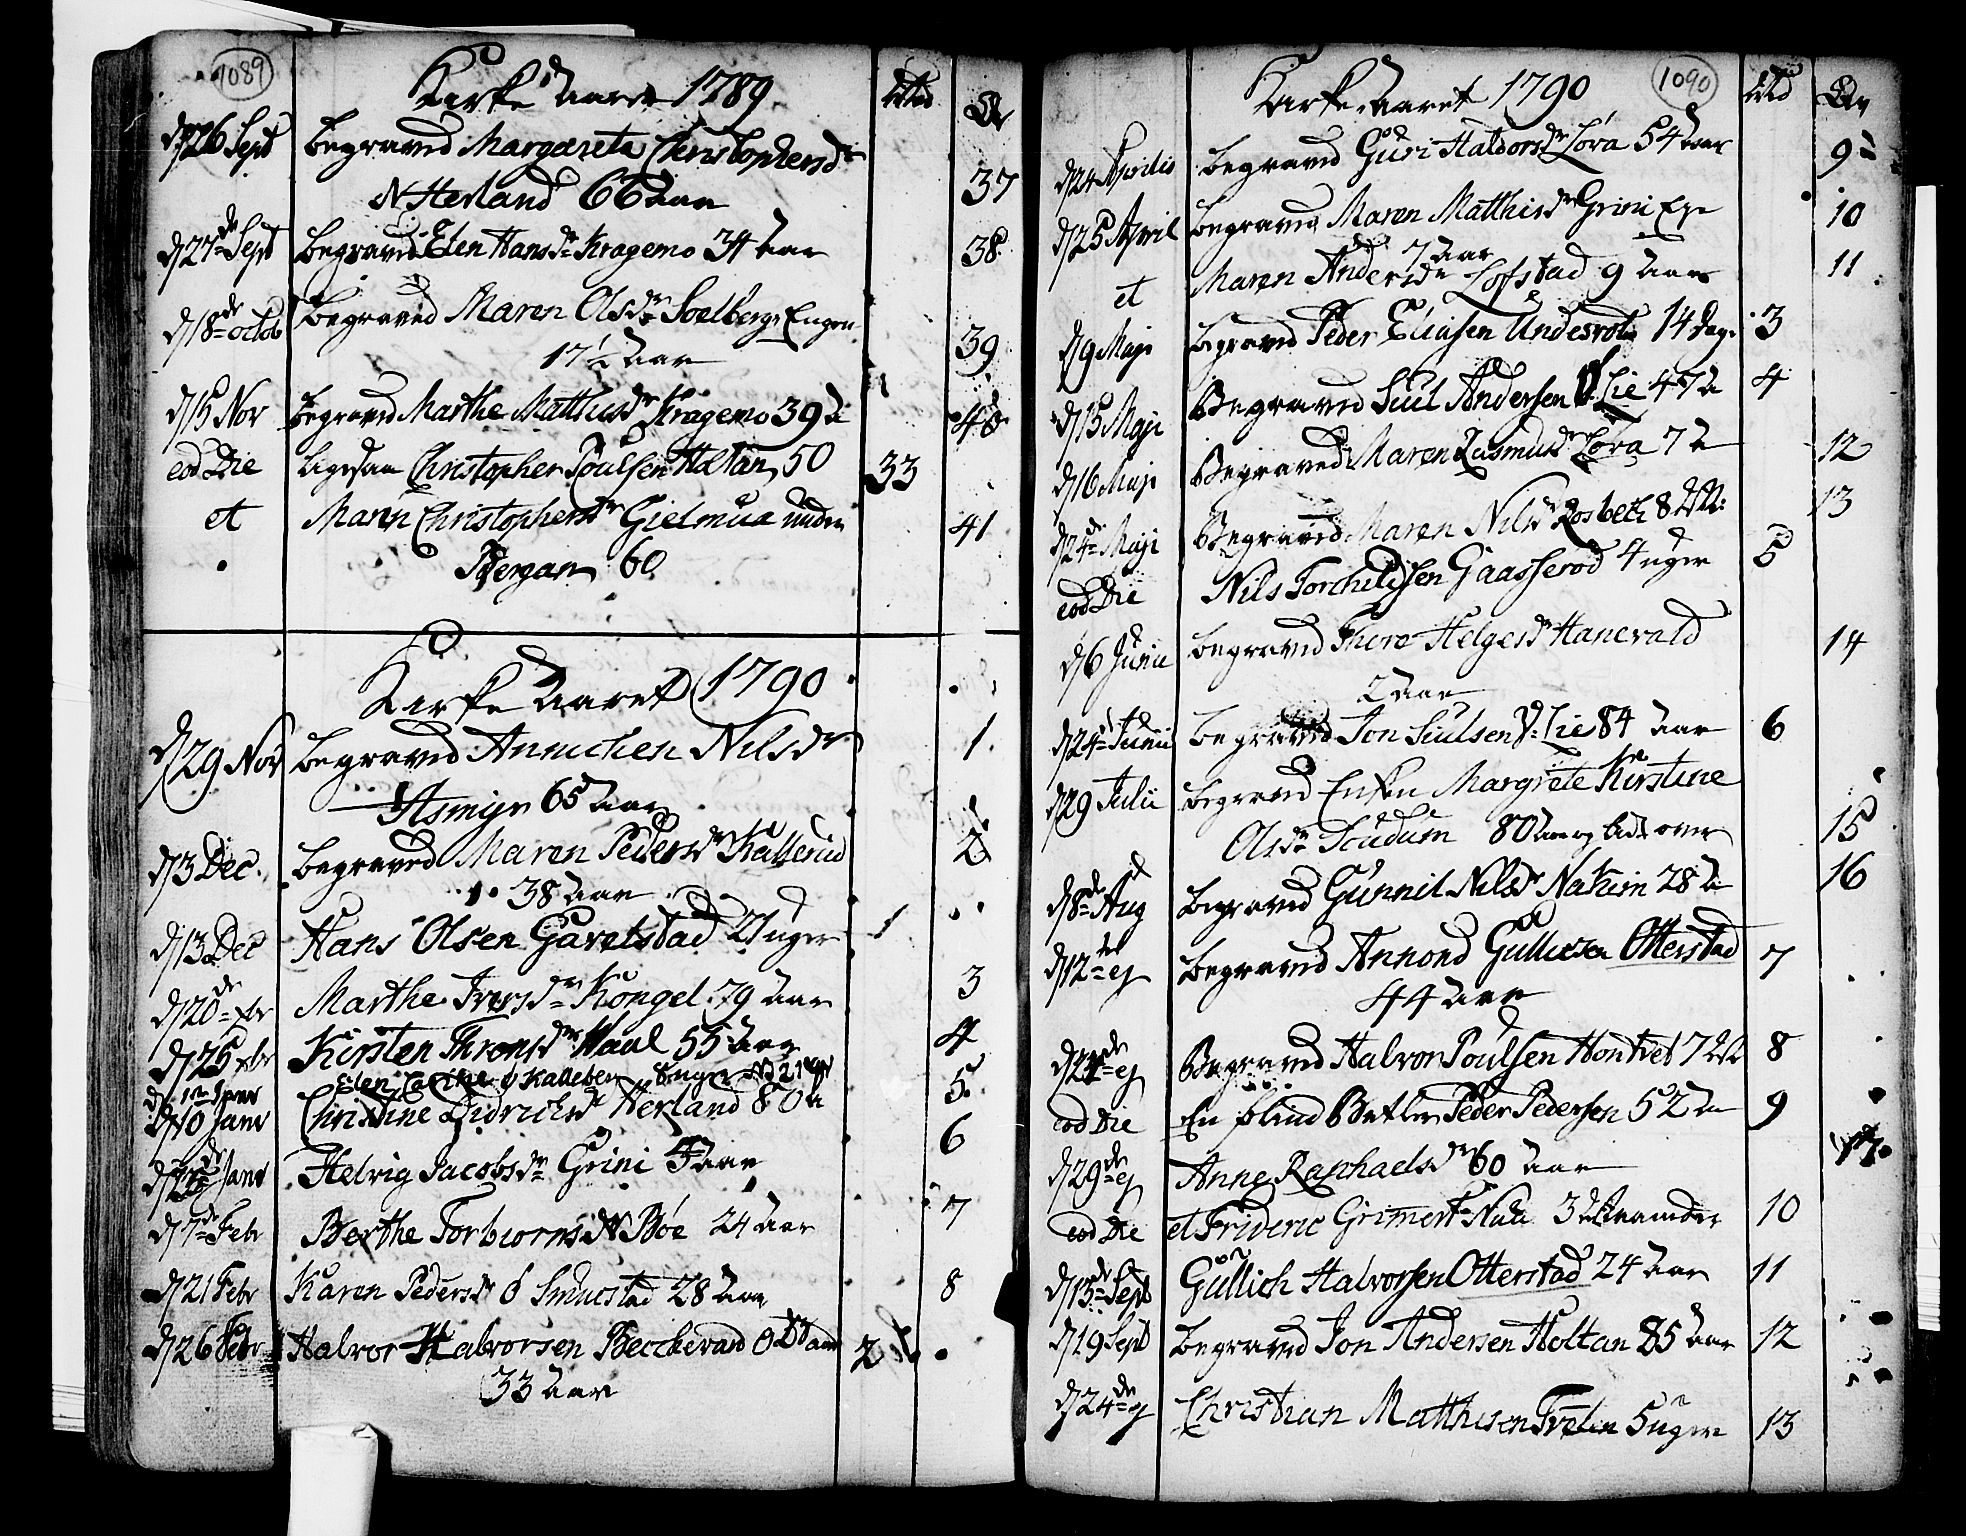 1089
Kirke Aaret 1789.
d/26 Sept Begraved Margareta Christophersdr
N Herland 66 Aar 37
d/27de Sept Begraved Elen Hansdr Kragemo 34 Aar 38
d/18de Octob Begraved Maren Olsdr Soelbergs Engen
17 1/2 Aar 39
d/15 Nov Begraved Marthe Matthisdr Kragemo 39 A 40
eod Die Ligesaa Christopher Poulsen Holtan 50 33
et Maren Christophersdr Gielmua under 41
Bergan 60
Kirke Aaret 1790
d/29 Nov Begraved Annichen Nilsdr 1.
Asmyr 65 Aar
d/3 Dec. Begraved Maren Pedersdr Kallerud 2
38 Aar
d/13 Dec Hans Olsen Garetstad 21 uger 1
d/20de xbr Marthe Iversdr Kongel 79 Aar 3
d/25 xbr Kirsten Thronsdr Waul 55 Aar 4
Elen Cathe Kalleben
d/10 Janv Christine Didrichsdr Herland 80 A 5.
Janv Helvig Jacobsdr Grini Aar 6
d/7de Febr Berthe Torbiorns N Bøe 24 Aar 7
d/21 Febr Karen Pedersdr Ø Smucstad 28 Aar 8
d/26 Febr Halvor Halvorsen Beckevard 2
33 Aar
1090
Kirke Aaret 1790
d/24 Aprilis Begraved Guri Haldorsdr Lora 54 Aar 9
d/25 April Begraved Maren Matthisdr Grini Eje 10
7 Aar
et Maren Andersdr Lofstad 9 Aar 11
d/9 Maji Begraved Peder Eliasen Undesrot 14 Dage 3
d/15 Maji Begraved Siul Andersen V. Lie 47 A 4
d/16 Maji Begraved Maren Rasmusdr Lora 7 A 12
d/24de Maji Begraved Maren Nilsdr Rosbeth 8 13
eod Die Nils Torchildsen Gaasserod 4 uger 5
d/6 Junii Begraved Thore Helgesdr Hanevald 14
2 Aar
d/24 Junii Begraved Jon Siulsen V: Lie 84 Aar 6
d/29 Julii Begraved Enken Margrete Kirstine
Olsdr Scudum 80 Aar og lidt over 15
d/8de Aug Begraved Gunnil Nilsdr Nakim 28 A 16
d/12te ej Begraved Annond Gullicsen Otterstad 7
44 Aar
ej Begraved Halvor Poulsen Hontvet 7 8
eod Die En blind Betler Peder Pedersen 52 A 9
d/29de ej Anne Raphaelsdr 60 Aar 17.
eod Die et Frideric Grimert 3 10
d/13de Sept Gullich Halvorsen Otterstad 24 Aar 11
d/19 Sept Begraved Jon Andersen Holtan 85 Aar 12
d/24de ej Christian Matthisen Tveten 5 uger 13